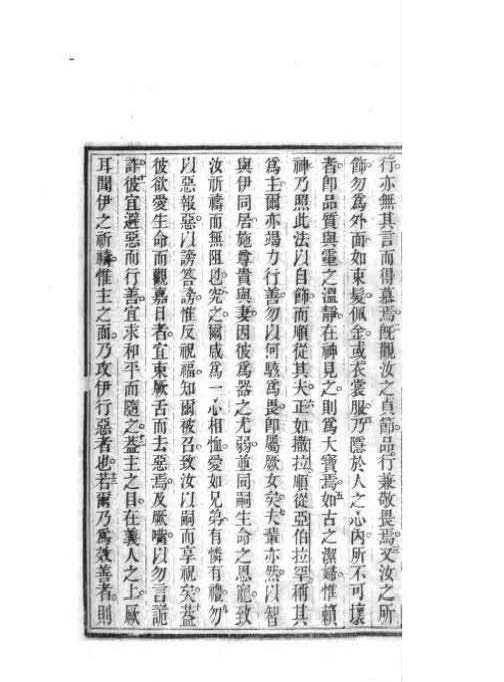 行亦無其言而得慕焉旣觀汝之貞節品行兼敬畏焉又汝之所
飾勿爲外面如束髮佩金或衣裳服乃隱於人之心內所不可壞
者卽品質與靈之溫靜在神見之則爲大寶焉如古之潔婦惟賴
神乃照此法以自飾而順從其夫正如撒拉順從亞伯拉罕稱其
爲主爾亦竭力行善勿以何駭爲畏卽屬厥女矣夫輩亦然以智
與伊同居施尊貴與妻因彼爲器之尤弱並同嗣生命之恩寵致
汝祈禱而無阻也究之爾咸爲一心相恤愛如兄弟有憐有禮勿
以惡報惡以謗答謗惟反祝福知爾被召致汝以嗣而享祝矣蓋
彼欲愛生命而觀嘉日者宜束厥舌而去惡焉及厥嘴以勿言詭
詐彼宜避惡而行善宜求和平而隨之蓋主之目在義人之上厥
耳聞伊之祈禱惟主之面乃攻伊行惡者也若爾乃爲效善者則